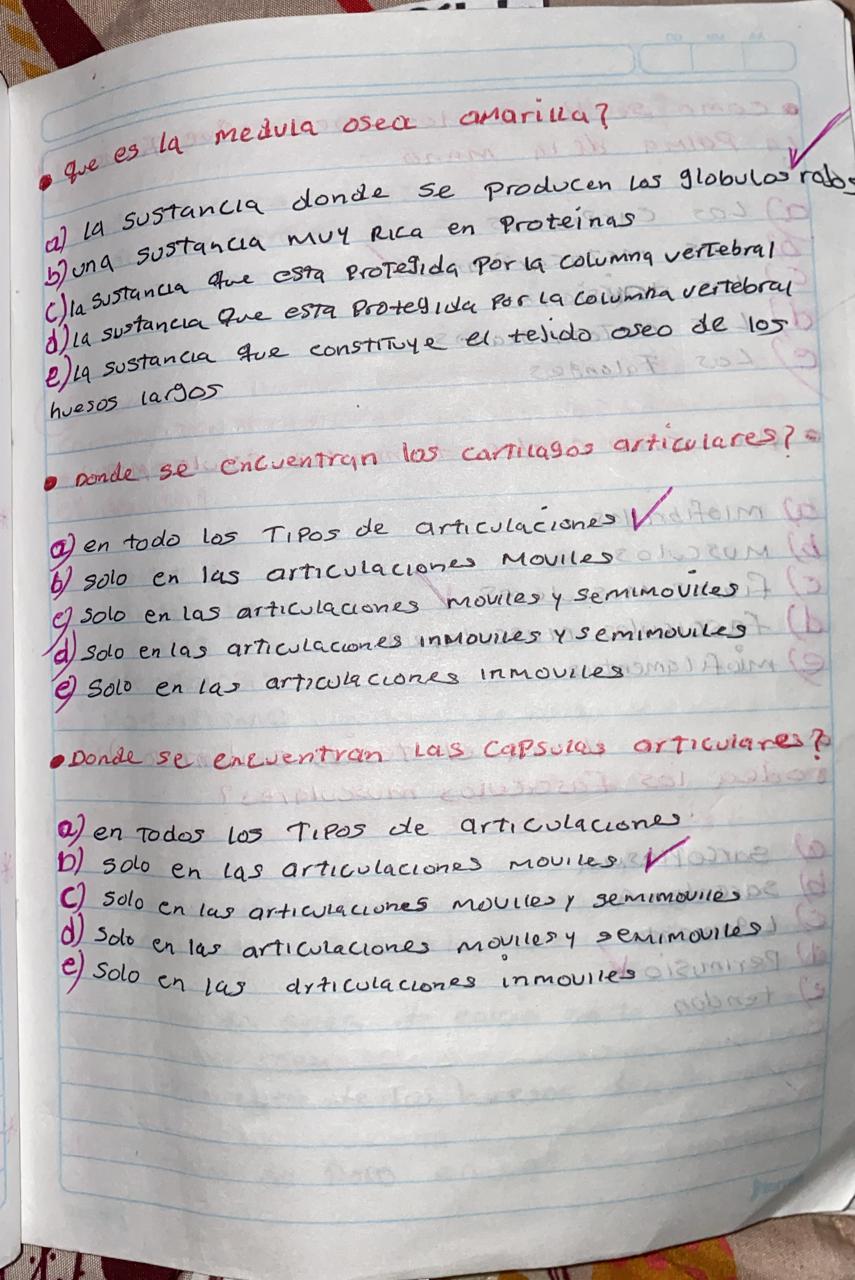 • que es la medula osea amarilla?
a) la sustancia donde se producen los globulos rojos
b) una sustancia muy rica en proteinas
c) la sustancia que esta protegida por la columna vertebral
d) la sustancia que esta protegida por la columna vertebral
e) la sustancia que constituye el tejido oseo de los
huesos largos
• Donde se encuentran los cartilagos articulares?
a) en todo los tipos de articulaciones
b) solo en las articulaciones moviles
c) solo en las articulaciones moviles y semimoviles
d) solo en las articulaciones inmoviles y semimoviles
e) solo en las articulaciones inmoviles
• Donde se encuentran las capsulas articulares?
a) en todos los tipos de articulaciones
b) solo en las articulaciones moviles
c) solo en las articulaciones moviles y semimoviles
d) solo en las articulaciones moviles y semimoviles
e) solo en las articulaciones inmoviles